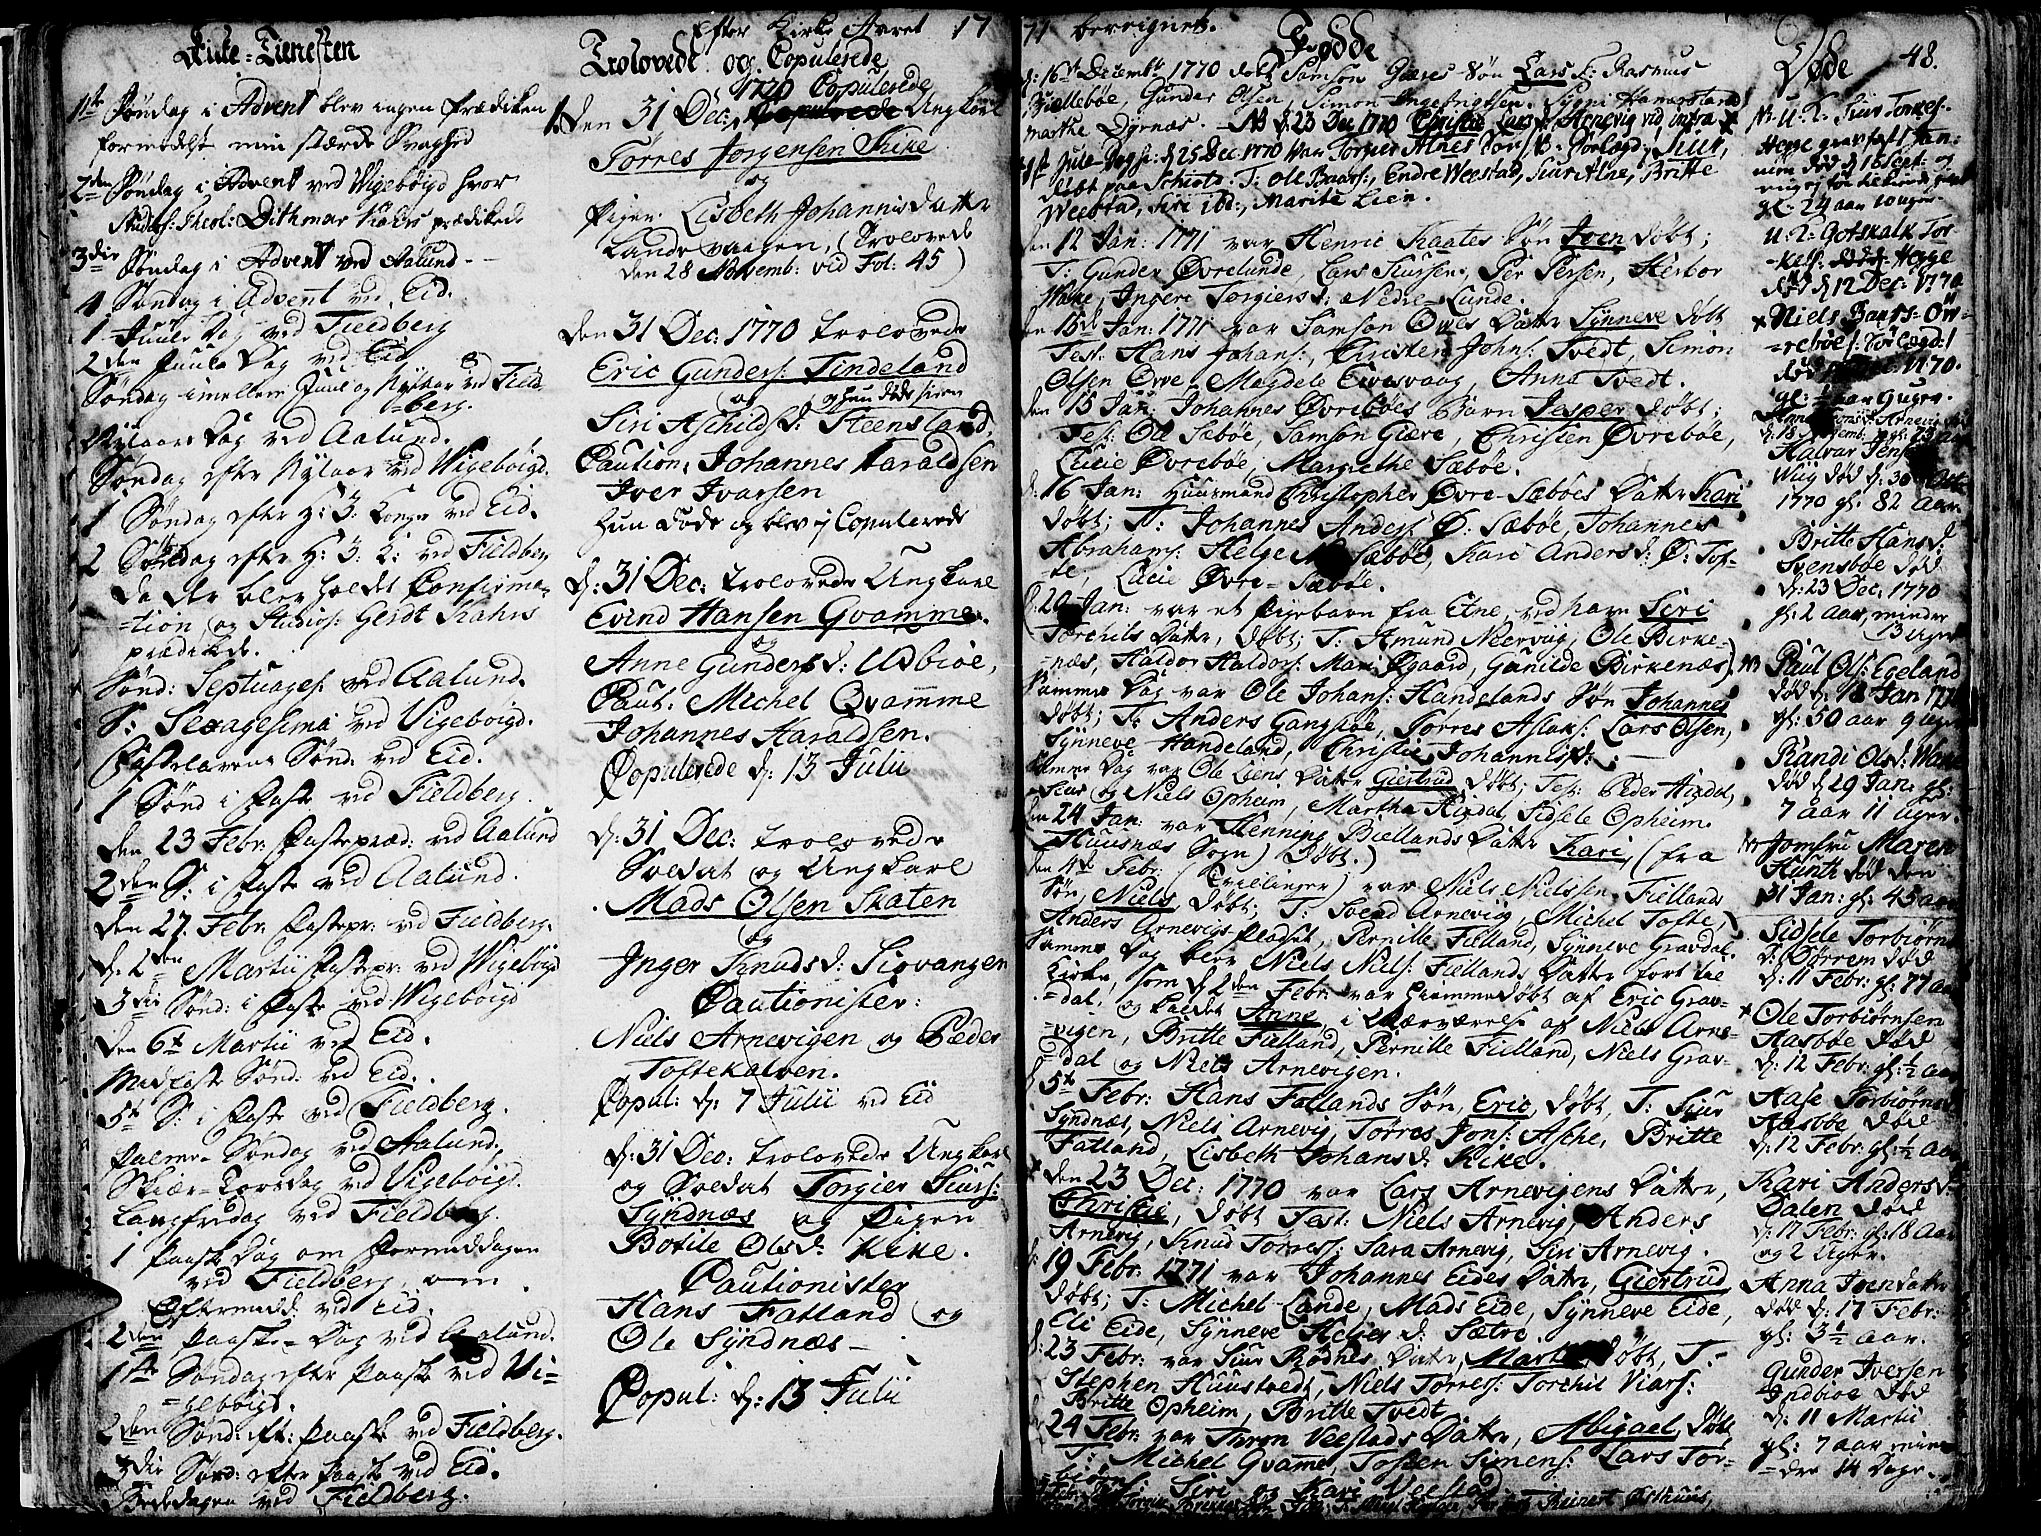 Efter Kirke Aaret 17
71 beregnet.
Kirke-Tienesten
1ste Søndag i Advent blev ingen Prædiken
formedelst min stærke Svaghed
2den Søndag i Advent ved Wigebøigd hvor
Studios: Theol: Dithmar Kahrs prædikede
3die Søndag i Advent ved Aalund
4 Søndag i Advent ved Eid.
1 Juule Dag ved Fieldberg
2den Juule Dag ved Eid
Søndag imellem Juul og Nytaar ved Field-
=berg.
Nytaars Dag ved Aalund.
Søndag efter Nytaar ved Wigebøigd.
1 Søndag efter H: 3: Konger ved Eid.
2 Søndag efter H: 3: K: ved Fieldberg
da der blev holdt Confirma-
=tion, og Studios: Gerdt Kahrs
prædikede.
Sønd: Septuages: ved Aalund.
S: Sexagesima ved Vigebøigd.
Fastelavens Sønd: ved Eid.
1 Sønd i Faste ved Fieldberg.
den 23 Febr: Fastepræd: ved Aalund
2den S: i Faste ved Aalund.
den 27. Febr: Fastepr: ved Fieldberg.
d: 2den Martii Fastepr: ved Wigebøigd
3die Sønd: i Faste ved Wigebøigd
den 6te Martii ved Eid.
Midfaste Sønd: ved Eid.
5te S: i Faste ved Fieldberg.
Palme Søndag ved Aalund.
Skiær-Torsdag ved Vigebøigd.
Langfredag ved Fieldberg.
1 Paaske Dag om Formiddagen
ved Fieldberg, om
Eftermidd: ved Eid.
2den Paaske-Dag ved Aalund.
1ste Søndag efter Paaske ved Vi-
=gebøigd.
2den Sønd: eft: Paaske ved Fieldberg.
3die Sønd: efter Paaske ved Eid.
Bededagen ved Fieldberg.
Trolovede og Copulerede
Den 31 Dec: 1770 Copulerede Ungkarl
Torres Jørgensen Kike
og
Pigen Lisbeth Johannisdatter
Landevaagen, (Trolovede
den 28 Novemb: vid Fol: 45)
den 31 Dec: 1770 trolovede
Eric Gunders: Tindeland
og
Siri Aschilds D: Steensland.
og hun døde siden
Caution: Johannes Haraldsen
Iver Ivarsen
hun døde og blev ej Copulerede
d: 31 Dec: trolovede Ungkarl
Evind Hansen Qvamme.
og
Anne Gunders d: Udbiøe,
Caut: Michel Qvamme
Johannes Haraldsen.
Copulerede d: 13 Julii
d: 31 Dec: trolovede
Soldat og Ungkarl
Mads Olsen Skaten
og
Inger Knuds d: Siovangen
Cautionister:
Niels Arnevigen og Peder
Toftekalven.
Copul: d: 7 Julii ved Eid
d: 31 Dec: trolovede Ungkarl
og Soldat Torgier Siurs:
Syndnæs og Pigen
Botile Ols d: Kike.
Cautionister
Hans Fatland og
Ole Syndnæs
Copul: d: 13 Julii
Fødde
d: 16de Decembr 1770 døbt Samson Giæres Søn Lars T: Rasmus
Biellebøe, Gunder Olsen, Simon Ingebrigtsen,
Marthe Dyrnæs. NB d: 23 Dec 1770 Christie Lars d: Arnevig vid infra
1ste Jule Dag d: 25 Dec 1770 var Torgier Alnes Søn Siur,
døbt T: Ole Endre Weestad, Siur Alne, Britte
Weestad, Siri ibd:, Marite Lien.
den 12 Jan: 1771 var Henric Skaates Søn Iven døbt;
T: Gunder Øvrelunde, Lars Siursen, Per Persen, Herbor
Wake, Ingeri Torgiers d: Nedre-Lunde.
den 15de Jan: 1771 var Samson Owes Datter Synneve døbt
Test: Hans Johans:, Christen Johns: Tvedt, Simon
Olsen Øvre Magdele Eivesvaag, Anna Tvedt.
den 15 Jan: Johannes Øvrebøes Barn Jesper døbt;
Tes: Ole Sæbøe, Samson Giære, Christen Øvrebøe,
Lucie Øvrebøe, Margrethe Sæbøe.
d: 16 Jan: Huusmand Christopher Øvre-Sæbøes Datter Kari
døbt; T: Johannes Anders: Ø: Sæbøe, Johannes
Abrahams: Helge Sæbøe, Kari Anders d: Ø: Tof-
=te, Lucie Øvre-Sæbøe.
d: 20 Jan: var et Pigebarn fra Etne, ved navn Siri
Torchils Datter, døbt; T: Amund Nærviig, Ole Birke-
=næs, Haldor Haldors: Mari Øgaard, Gunilde Birkenæs.
Samme Dag var Ole Johans: Handelands Søn Johannes
døbt; T: Anders Gangstøe, Torres Aslaks: Lars Olsen,
Synneve Handeland, Christie Johannis d:
Samme Dag var Ole Liens Datter Giertrud døbt; Tes: Peder Hixdal,
Siur og Niels Opheim, Martha Hixdal, Sidsele Opheim
den 24 Jan: var Henning Biellands Datter Kari (fra
Huusnæs Sogn) døbt.
den 4de Febr: (Tvillinger) var Niels Nielsen Fiellands
Søn, Niels, døbt; T: Svend Arnevig, Michel Tofte,
Anders Arnevigs Pladset, Pernille Fielland, Synneve Gravdal.
Samme Dag blev Niels Niels: Fiellands Datter ført til
Kirke, som d: 2den Febr: var hiemmedøbt af Eric Grav-
=dal, og kaldet Anne, i Overværelse af Niels Arne-
=vigen, Britte Fielland, Pernille Fielland, Niels Grav-
=dal og Niels Arnevigen.
d: 5te Febr: Hans Fatlands Søn, Eric, døbt, T: Siur
Syndnæs, Niels Arnevig, Torres Jons: Asche, Britte
Fatland, Lisbeth Johans d: Kike.
den 23 Dec: 1770 var Lars Arnevigens Datter,
Christie, døbt Test: Niels Arnevig, Anders
Arnevig, Knud Torress: Sara Arnevig, Siri Arnevig.
d: 19 Febr: 1771 var Johannes Eides Datter, Giertrud
døbt; T: Michel Lande, Mads Eide, Synneve Eide,
Eli Eide, Synneve Helges d: Sætre.
d: 23 Febr: var Siur Rødnes Datter, Marte, døbt, T:
Stephen Huustvedt, Niels Torress: Torchil Viars:
Britte Opheim, Britte Tvedt.
24 Febr: var Thron Veestads Datter, Abigael, døbt,
T: Michel Gvame, Tosten Simens: Lars Tor-
=biørns: Siri og Kari Veestad
Døde
48.
NB U: L: Siur Torkes:
Hegge
død d: 16 Sept: og
gl: 24 aar 10 uger
U: L: Gotskalk Tor-
=kels: Hegge
død d: 12 Dec: 1770
Niels Baars: Øv-
=rebøe:
død 1770.
gl: aar 6 uger.
Halvar Jens:
Wiig død d: 30 Oct:
1770 gl: 82 aar.
Britte Hans d:
Svensbøe død
d: 23 Dec: 1770
gl: 2 aar, minder
3 uger
NB Paul Ols: Egeland
død d: 18 Jan 1771
gl: 50 aar 9 uger
Randi Ols d: Wake
død d: 29 Jan: gl:
7 aar 11 uger.
Jomfru Maren
Hunth død den
31 Jan: gl: 45 aar
Sidsele Torbiørns
d: Børrem død
d: 11 Febr: gl: 77 aar
Ole Torbiørnsen
Aasbøe død
d: 12 Febr: gl: ½ aar
Aase Torbiørns
Aasbøe død
d: 12 Febr: gl: ½ aar
Kari Anders d:
Dalen død
d: 17 Febr: gl: 18 Aar
og 2 Uger.
Anna Ivendatter
død d: 17 Febr:
gl: 3½ aar.
Gunder Iversen
Indbiøe død
d: 11 Martii
gl: 7 aar min-
=dre 14 Dage.